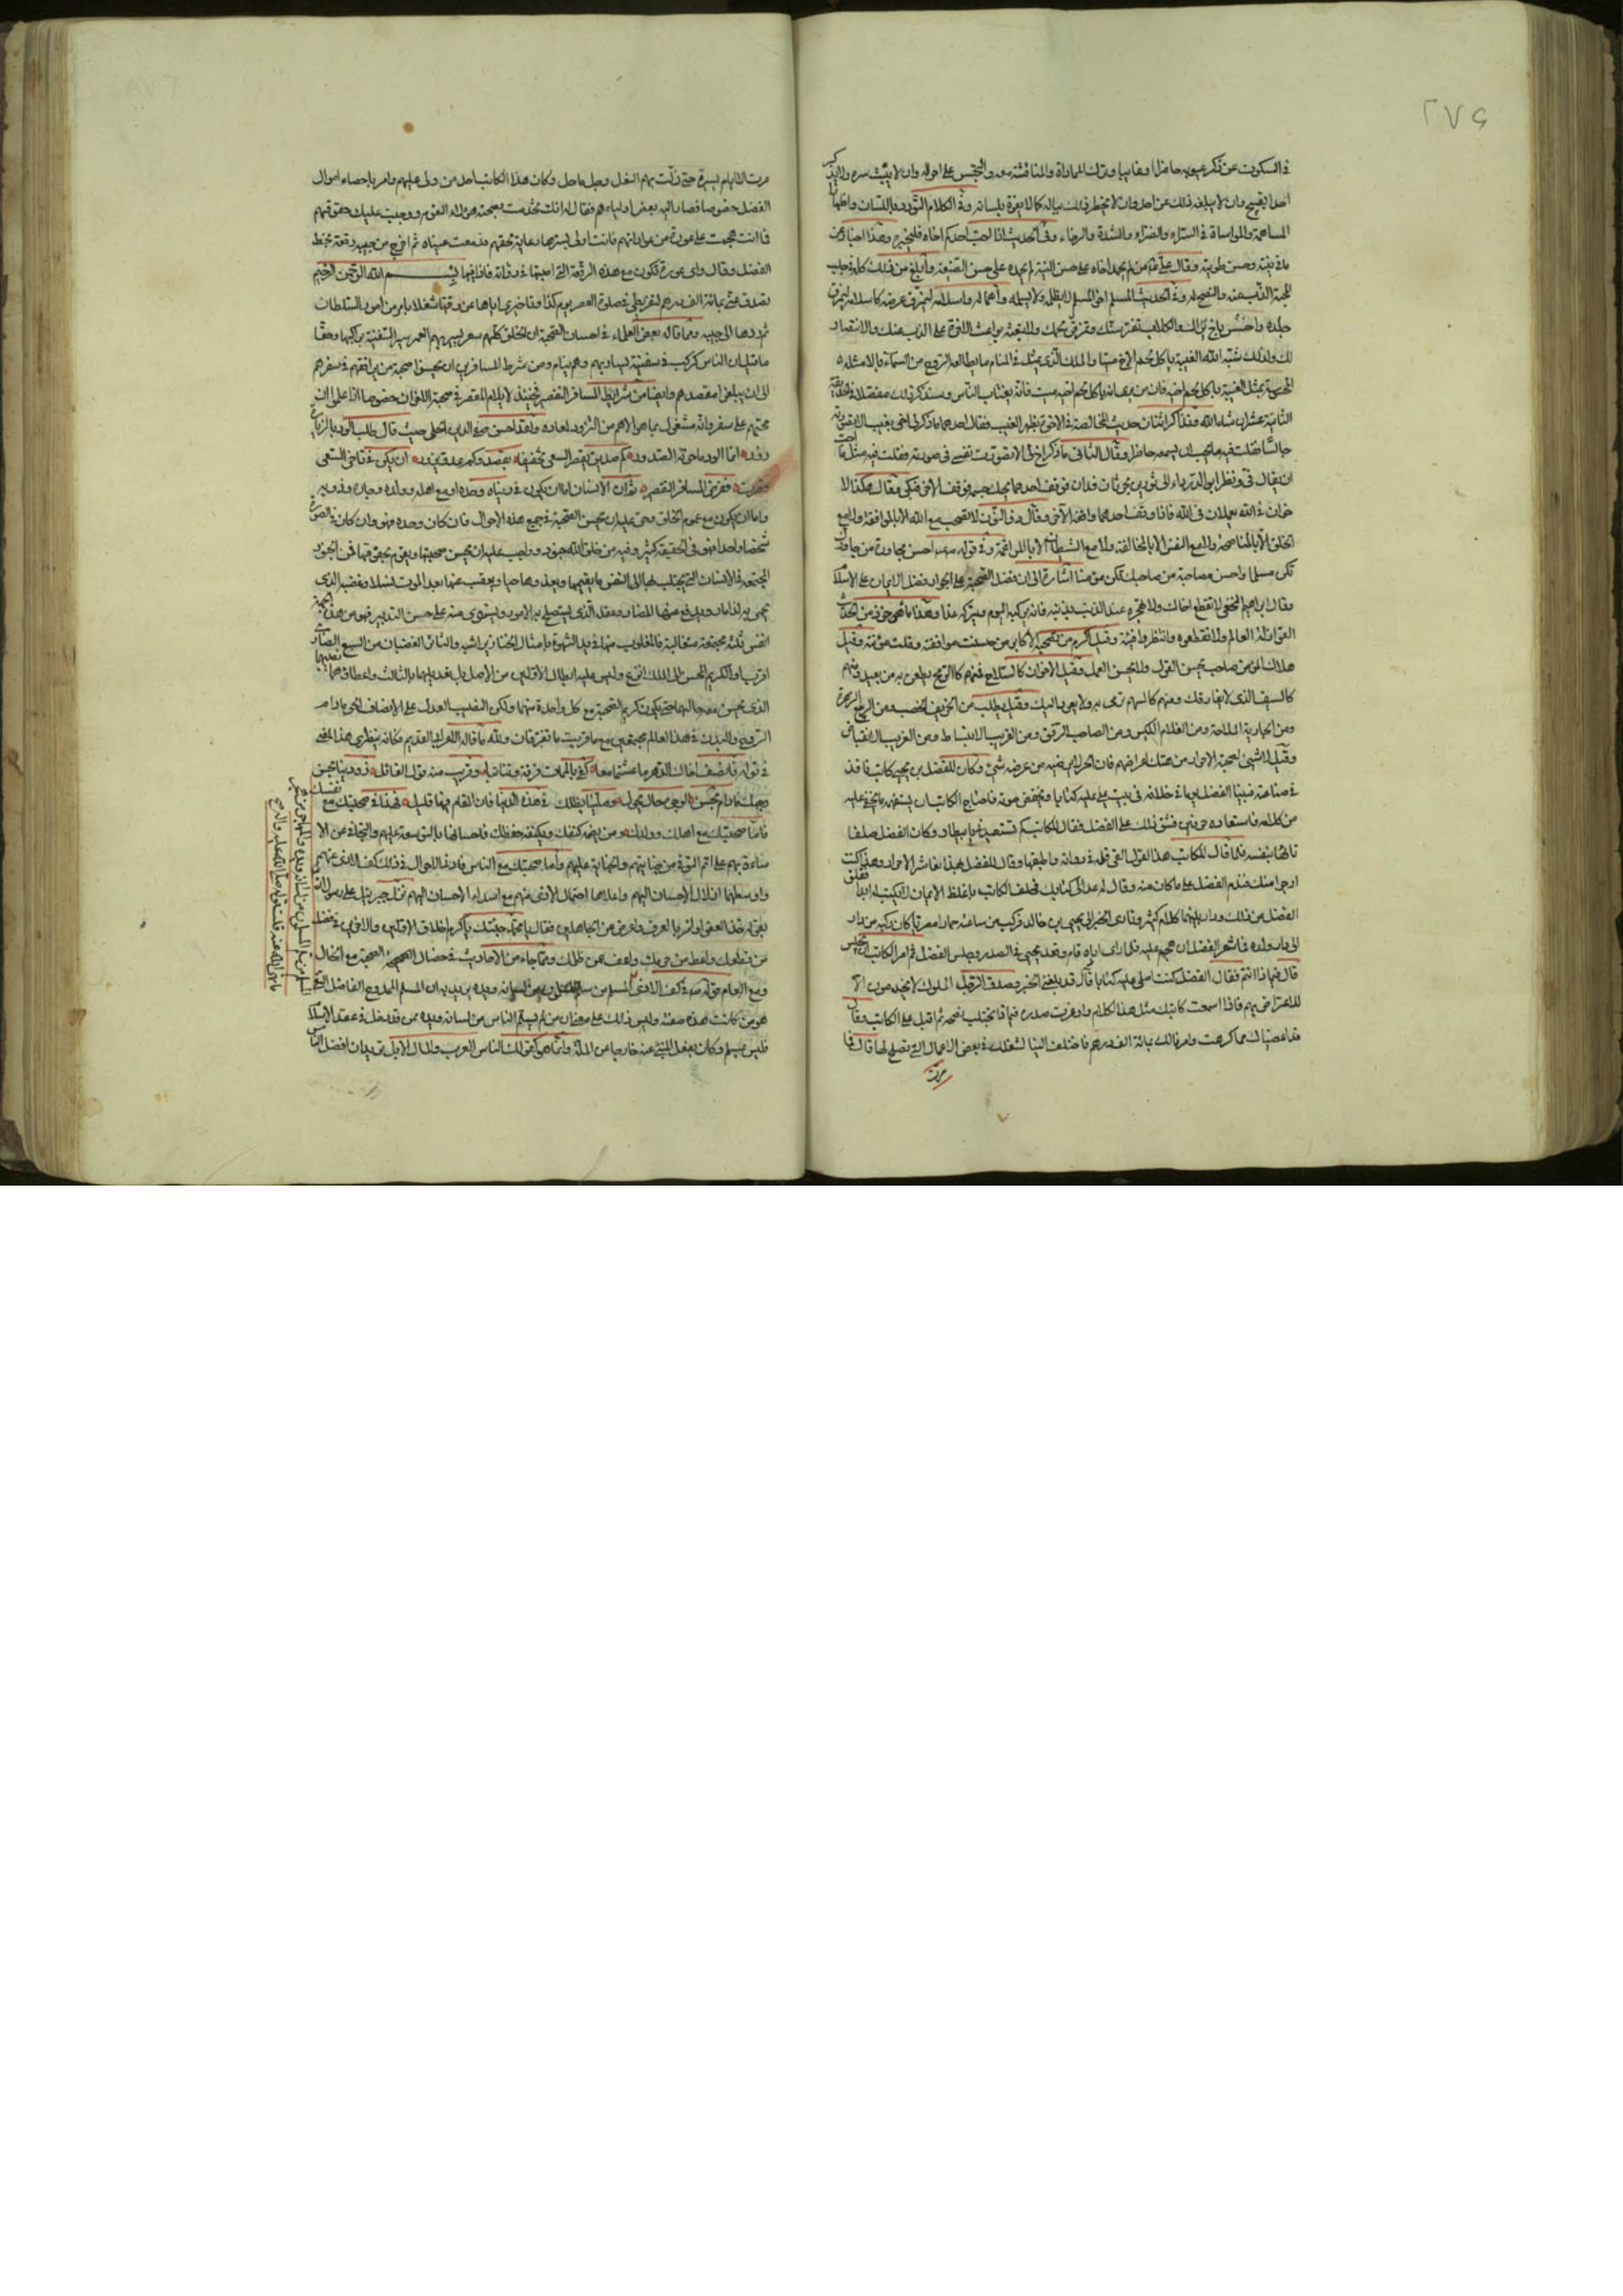 ٢٧٩
في السكوت عن ذكر عيوبه حاضرا وغايبا وترك المماراة والمناقشة معه والتجسس على احواله وان لا يبث سره ولا يذكر
احدا بقبيح وان لا يبلغه ذلك عن احد وان لا يخطر ذلك بباله كما لا يفوه بلسانه وفي الكلام التودد باللسان واظهار
المساهمة والمواساة في السراء والضراء والشدة والرخاء وفي الحديث اذا احب احدكم اخاه فليخبره وهذا اخبار عن
نيته وحسن طويته وقال علي من لم يحمد اخاه على حسن النية لم يحمده على حسن الصنيعة وابلغ من ذلك كله في جلب
المحبة الذب عنه والنصح له وفي الحديث المسلم اخو المسلم لا يظلمه ولا يسلمه
جلده واخسس باخ يراك والكلاب تفترسك وتمزق لحمك ولا تبعثه بواعث الاخوة على الذب عنك والانتصار
لك ولذلك شبه الله الغيبة باكل لحم الاخ ميتا والملك الذي يمثل في المنام ما يطالعه الروح من السماء بالامثلة
المحسوسة يمثل الغيبة باكل لحم اخيه فان من يرى انه ياكل لحم اخيه ميت فانه يغتاب الناس وسنذكر ذلك مفصلا في
الثانية عشر ان شاء الله وتذاكر اثنان حديث المخالصة في الاخوة بظهر الغيب فقال احدهما ما ذكر لي اخي بغيب الا تصورته
جالسا فقلت فيه ما يحب ان يسمعه حاضرا وقال الثاني ما ذكر اخ لي الا تصورت نفسي في صورته فقلت فيه مثل ما احب
ان يقال في ونظر ابو الدرداء الى ثورين يحرثان في فدان فوقف احدهما يحك جسمه فوقف الاخر فبكى وقال هكذا الا
خوان في الله يعملان في الله فاذا وقف احدهما وافقه الاخر وقال ذو النون لا تصحب مع الله الا بالموافقة ولا مع
الخلق الا بالمناصحة ولا مع النفس الا بالمخالفة ولا مع الشيطان الا بالمراغمة وفي قوله احسن مجاورة من جاورك
تكن مسلما واحسن مصاحبة من صاحبك تكن مؤمنا اشارة الى ان فضل الصحبة على الجوار فضل الايمان على الاسلام
وقال ابراهيم النخعي لا تقطع اخاك ولا تهجره عند الذنب يذنبه فانه يركبه اليوم ويتركه غدا وهذا ماخوذ من الحديث
اتقوا زلة العالم ولا تقطعوه وانتظروا فيئته وقيل اكرم من تصحبه الاكابر من حسنت موافقته وقلت مؤنته وقيل
هلاك المؤمن صاحب يحسن القول ولا يحسن العمل وقيل الاخوان كالسلاح فمنهم كالرمح يطعن به من بعيد ومنهم
كالسيف الذي لا يفارقك ومنهم كالسهم ترمى به ولا يعود اليك وقيل يطلب من الخريف الخصب ومن الربيع الزهرة
ومن الجارية الملاحة ومن الغلام الكيس ومن الصاحب الرفق ومن القريب الانبساط ومن الغريب الانقباض
وقيل لا شيء لصحبة الاحرار من هتك اعراضهم فان الحر لا يرضيه من عرضه شيء وكان للفضل بن يحيى كاتب نافذ
في صناعته فبينا الفضل يوما في خلافة في بيت يملي عليه كتابا ويخفض صوته فاحتاج الكاتب ان يستفهم ما يخفى عليه
من كلامه فاستعاده مرتين فشق ذلك على الفضل فقال للكاتب كم تستعيدني يا بيطار وكان الفضل صلفا
تائها بنفسه فلما قال للكاتب هذا القول القى قلمه في دواته واطبقها وقال للفضل بهذا تعاشر الاحرار وهذا كنت
ارجو منك فندم الفضل على ما كان منه وقال له عد الى كتابك فحلف الكاتب باغلظ الايمان لا يكتب له ابدا فقلق
الفضل من ذلك ودار بينهما كلام كثير وتادى الخبر الى يحيى بن خالد فركب من ساعته حمارا مصريا كان يركبه من دار
الى دار ولده فما شعر الفضل ان هجم عليه فلما راى اباه قام وقعد يحيى في الصدر وجلس الفضل ثم امر الكاتب بالجلوس
قال فيما ذا انتم فقال الفضل كنت املي عليه كتابا قال قد بلغني الخبر وصدق الاول الملوك لا يخدمون الا
للاعتراض بهم فاذا اسمعت كاتبك مثل هذا الكلام واوغرت صدره فبما ذا تجتلب نصحه ثم اقبل على الكاتب وقال
قد اعضناك مما كرهت وامرنا لك بمائة الف درهم فاختلف الينا لنشغلك في بعض الاعمال التي تصلح لها قال فما
مرت
مرت الا ايام يسيرة حتى زلت بهم النعل وحل ما حل وكان هذا الكاتب احد من ولي عليهم وامر باحصاء اموال
الفضل خصوصا فصار اليه بعض اولياءهم فقال له انك تحرمت بصحبة هؤلاء القوم ووجبت عليك حقوقهم
فان انت هجمت على عورة من عوراتهم فانت اولى بسترها رعاية لحقهم فدمعت عيناه ثم اخرج من جيبه رقعة بخط
الفضل وقال واي عورة تكون مع هذه الرقعة التي اصبتها في دواته فاذا فيها بسم الله الرحمن الرحيم
تصدق عني بمائة الف درهم لتفريطي في صلوة العصر يوم كذا وتاخيري اياها عن وقتها شغلا بامر من امور السلطان
ثم ردها الى جيبه ومما قاله بعض العلماء في احسان الصحبة ان الخلق كلهم سفر يسير بهم العمر سير السفينة براكبها وحقا
ما قيل ان الناس كركب في سفينة يسار بهم وهم نيام ومن شرط المسافرين ان يحسنوا صحبة من يرافقهم في سفرهم
الى ان يبلغوا مقصدهم وايضا من شرايط المسافر التقصير فحينئذ لا يلام المقصر في صحبة الاخوان خصوصا اذا علم ان
محبهم على سفر وانه مشغول بما هو الاهم من التزود لمعاده ولقد احسن صفي الدين الحلي حيث قال طلب الود بالزيارة
زور انما الود ما حوته الصدور كم صديق يقصر السعي تخفيفا بقصد وكم عدو يزور ان يكن في تاخري السعي
قصرت ففرض المسافر التقصير ثم ان الانسان اما ان يكون في دنياه وحده او مع اهله وولده وجاره وذويه
واما ان يكون مع عموم الخلق وحق عليه ان يحسن الصحبة في جميع هذه الاحوال فان كان وحده فهو وان كان في الصورة
شخصا واحدا فهو في الحقيقة كثير وفيه من خلق الله جنود وواجب عليه ان يحسن صحبتها ويقوم بحقوقها فمن الجنود
المجتمعة في الانسان التي يجتلب لها الى النفس ما يقيمها ويغذوها حيا ويعقب عنها بعد الموت نسلا وغضبه الذي
يحمي به الذمار ويدفع عنها المضار وعقله الذي يستصلح به الامور ويستوي منه على حسن التدبير فهو من هذه الجهة
انفس ثلثة مجتمعة متغالبة فالمغلوب منها في يد الشهوة بامثال الخنازير اشبه والثائر الغضبان من السبع الضاري
اقرب والكريم المحسن الى الملك انزع وليس عليه ابطال الاولين من الاصل بل تعديلهما بالثالث واعطاؤهما
الذي يحسن معه حالهما حتى يكون كريم الصحبة مع كل واحدة منهما ولكن التغليب العدل على الانصاف الحي ما دام
الروح والبدن في هذا العالم مجتمعين مع ما قريب ما تفترقان ولله ما قاله الاعرابي القديم فكانه ينظر الى هذا المعنى
في قوله فلا تنصف اخاك الدهر ما عشتما معا كفى بالممات فرقة وتنائيا وقريب منه قول القائل زودينا من حسن
وجهك ما دام فحسن الوجوه حال يحول وصلينا نصلك في هذه الدنيا فان المقام فيها قليل فهذا في صحبتك مع نفسك
فاما صحبتك مع اهلك وولدك ومن يضمه كنفك ويكنفه حفظك فاحسانها بالتوسعة عليهم والتجافي عن الا
ساءة بهم على اتم التوق من جنايتهم والجناية عليهم واما صحبتك مع الناس فادنى الاحوال في ذلك كف الاذى عنهم
واوسطها انزال الاحسان اليهم واعلاها احتمال الاذى منهم مع اسداء الاحسان اليهم نزل جبريل على رسول الله
بقوله خذ العفو وأمر بالعرف واعرض عن الجاهلين فقال يا محمد جئتك باكرم اخلاق الاولين والاخرين
من قطعك واعط من حرمك واعف عمن ظلمك ومما جاء من الاحاديث في خصال الصحبة مع الخال
ومع العام قوله في كف الاذى المسلم من سلم المسلمون من لسانه ويده يريد به ان المسلم الممدوح الفاضل
هو من كانت هذه صفته وليس ذلك على معنى ان من لم يسلم الناس من لسانه ويده ممن قد دخل في عقد الاسلام
فليس بمسلم وكان بفعل السيئ عنه خارجا عن الملة وانما هو كقولك الناس العرب والمال الابل تريد ان افضل الناس